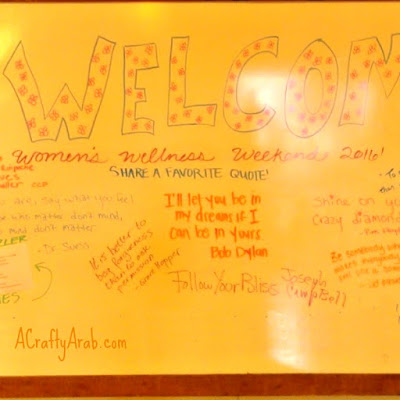 WELCOM
Women's Wellness Weekend 2016!
SHARE A FAVORITE QUOTE!
are, say what you feel
who matter don't mind,
mind don't matter
- Dr Suess
It is better to
beg forgiveness
than to ask
permission
- Grace Hopper
I'll let you be in
my dreams if I
can be in yours
Bob Dylan
Follow Your Bliss Joseph
Campbell
shine on yo
crazy diamond
Be somebody who
makes
ACraftyArab.com